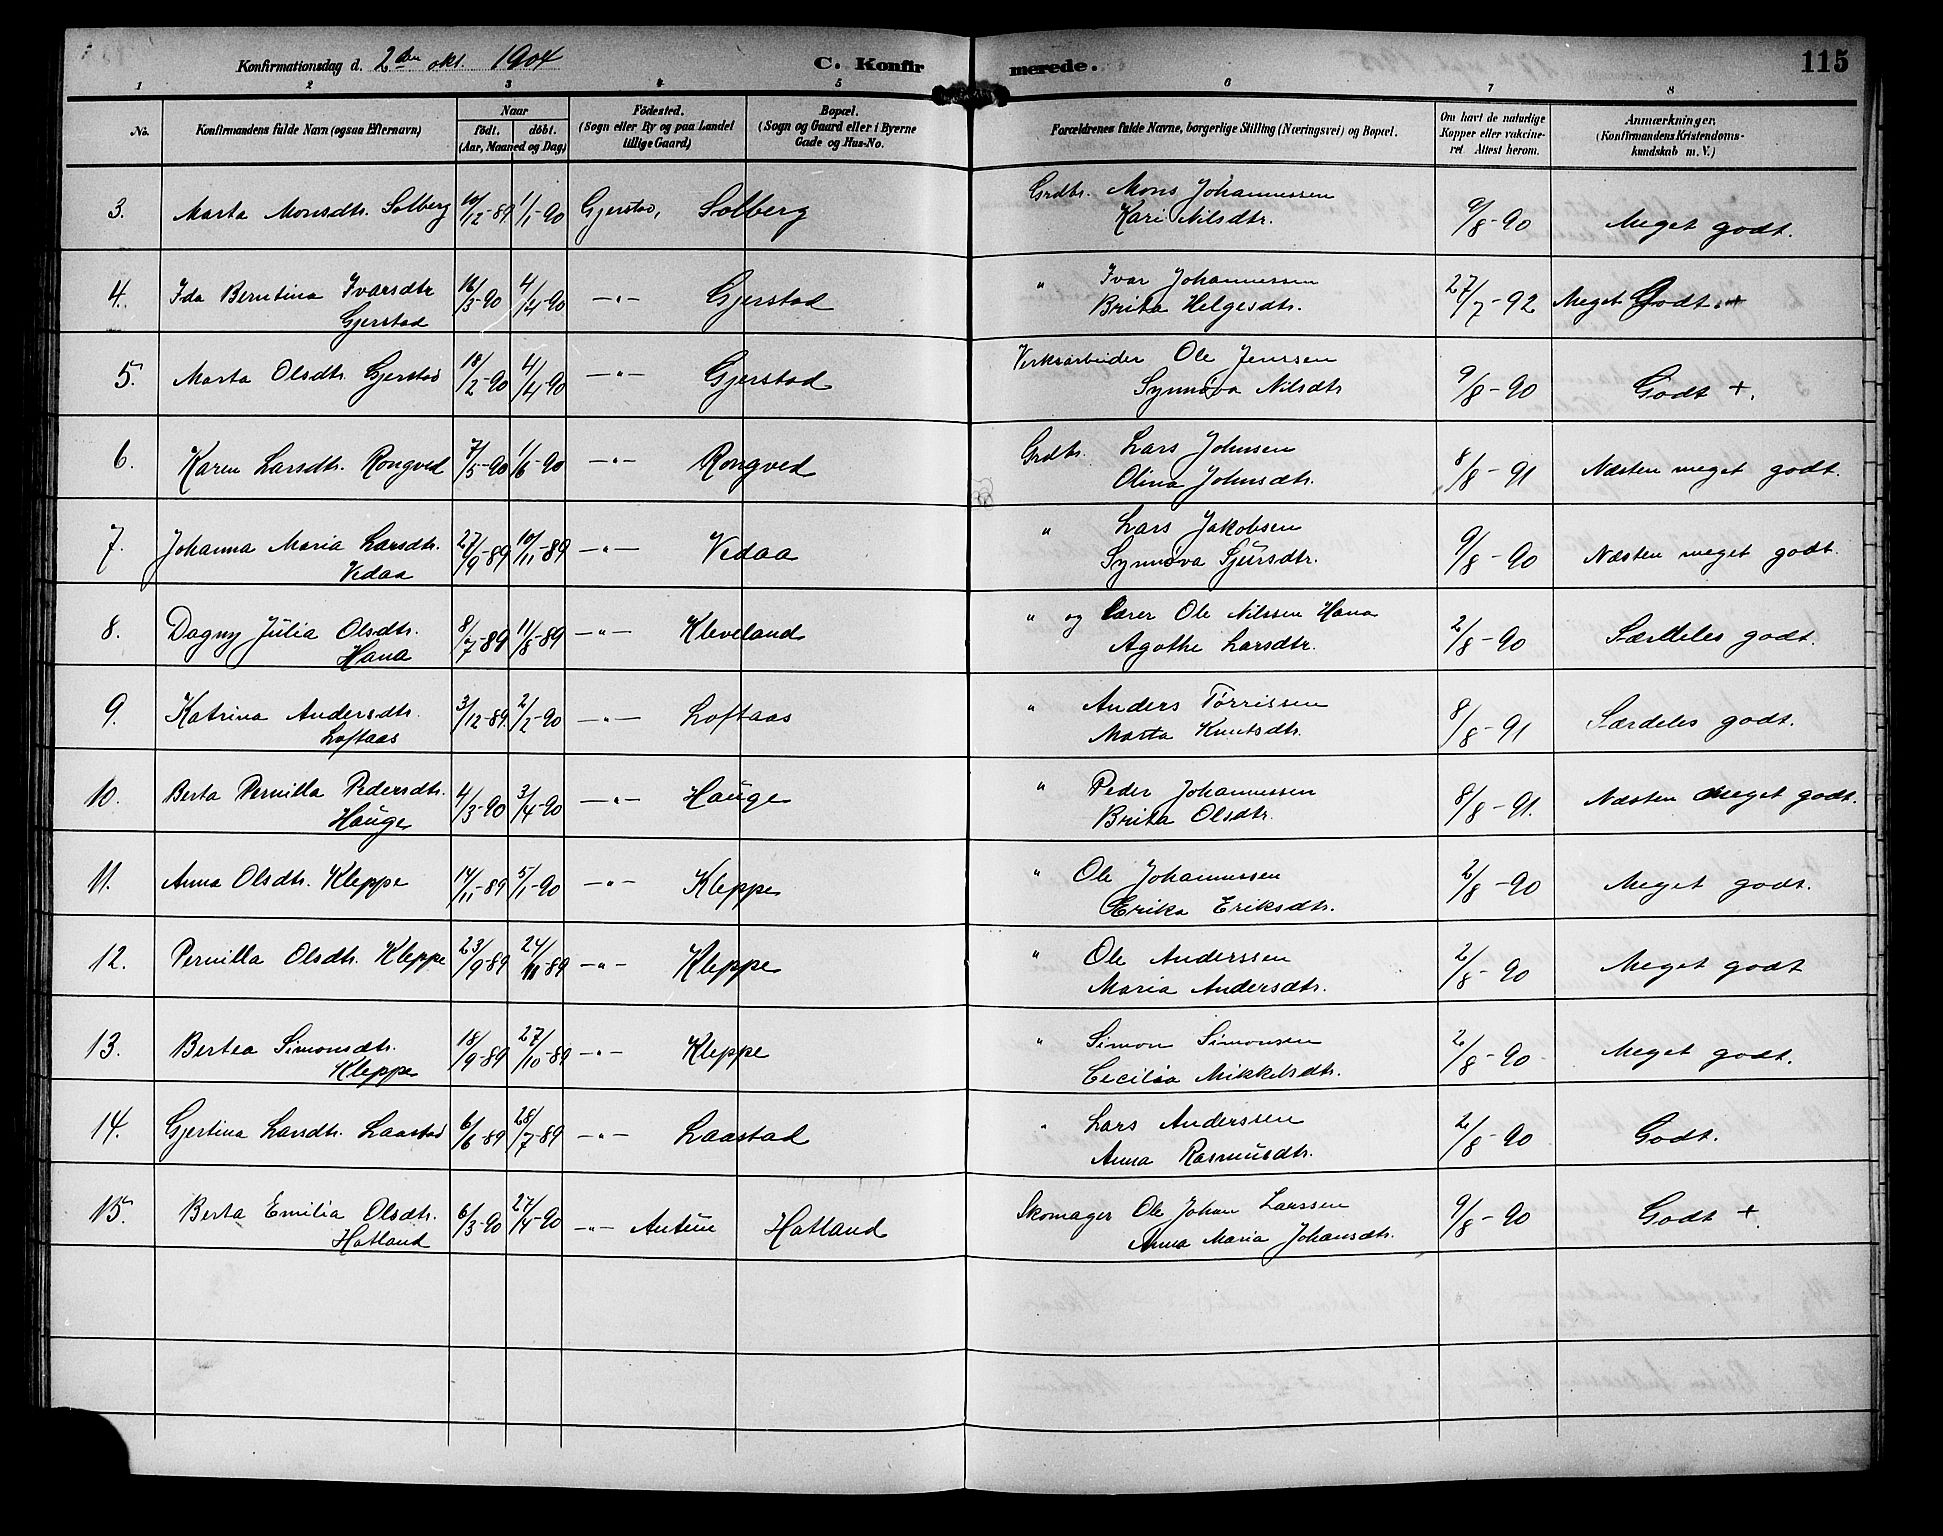 Konfirmationsdag d. 2den okt. 1904 C. Konfirmerede. 115
1 2 3 4 5 6 7 8
No. Konfirmandens fulde Navn (ogsaa Efternavn) Naar Födested. Bopæl. Forældrenes fulde Navne, borgerlige Stilling (Næringsvei) og Bopæl. Om havt de naturlige Anmærkninger.
födt. döbt. (Sogn eller By og paa Landet (Sogn og Gaard eller i Byerne Kopper eller vakcine- (Konfirmandens Kristendoms-
(Aar, Maaned og Dag) tillige Gaard) Gade og Hus-No. ret. Attest herom. kundskab m. V.)
3. Marta Monsdtr. Solberg 10/12-89 1/1-90 Gjerstad, Solberg Grdbr. Mons Johannessen 9/8-90 Meget godt.
Kari Nilsdtr.
4. Ida Berntina Ivarsdtr 16/3-90 4/4-90 -"- Gjerstad " Ivar Johannessen 27/7-92 Meget Godt.
Gjerstad Brita Helgesdtr.
5. Marta Olsdtr. Gjerstad 18/2-90 4/4-90 -"- Gjerstad Verksarbeider Ole Jenssen 9/8-90 Godt +.
Synnøva Nilsdtr
6. Karen Larsdtr. Rongved 7/5-90 1/6-90 -"- Rongved Grdbr. Lars Johnsen 8/8-91 Næsten meget godt.
Olina Johnsdtr.
7. Johanna Maria Larsdtr. 27/9-89 10/11-89 -"- Vedaa " Lars Jakobsen 9/8-90 Næsten meget godt.
Vedaa Synnøva Sjursdtr.
8. Dagny Julia Olsdtr. 8/7-89 11/8-89 -"- Kleveland " og Lærer Ole Nilssen Hana 2/8-90 Særdeles godt.
Hana Agathe Larsdtr.
9. Katrina Andersdtr. 3/12-89 2/2-90 -"- Loftaas " Anders Tørrissen 8/8-91 Særdeles godt.
Loftaas Marta Knutsdtr.
10. Berta Pernilla Pedersdtr. 4/3-90 3/4-90 -"- Hauge " Peder Johannessen 8/8-91. Næsten meget godt.
Hauge Brita Olsdtr.
11. Anna Olsdtr. Kleppe 14/11-89 5/1-90 -"- Kleppe " Ole Johannessen 2/8-90 Meget godt.
Erika Eriksdtr.
12. Pernilla Olsdtr. Kleppe 23/9-89 24/11-89 -"- Kleppe " Ole Anderssen 2/8-90 Meget godt
Maria Andersdtr.
13. Bertea Simonsdtr. 18/9-89 27/10-89 -"- Kleppe " Simon Simonsen 2/8-90 Meget godt.
Kleppe Cecilia Mikkelsdtr.
14. Gjertina Larsdtr. Laastad 6/6-89 28/7-89 -"- Laastad " Lars Anderssen 2/8-90 Godt.
Anna Rasmusdtr.
15. Berta Emilia Olsdtr. 6/3-90 27/4-90 -"- Antun Hatland Skomager Ole Johan Larssen 9/8-90 Godt +.
Hatland Anna Maria Johansdtr.